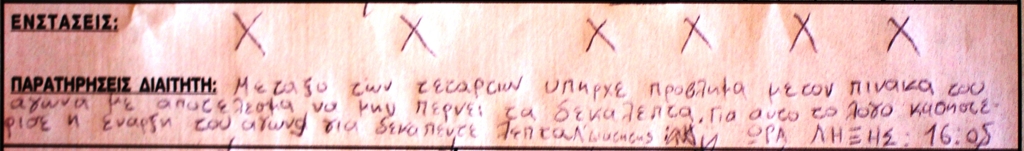 ΕΝΣΤΑΣΕΙΣ: X X X X X X
ΠΑΡΑΤΗΡΗΣΕΙΣ ΔΙΑΙΤΗΤΗ: Μεταξυ των τεταρτων υπηρχε προβλημα με τον πινακα του
αγωνα με αποτελεσμα να μην περνει τα δεκαλεπτα. Για αυτο το λογο καθηστε-
ρισε η εναρξη του αγωνα για δεκαπεντε λεπτα ΩΡΑ ΛΗΞΗΣ: 16:05